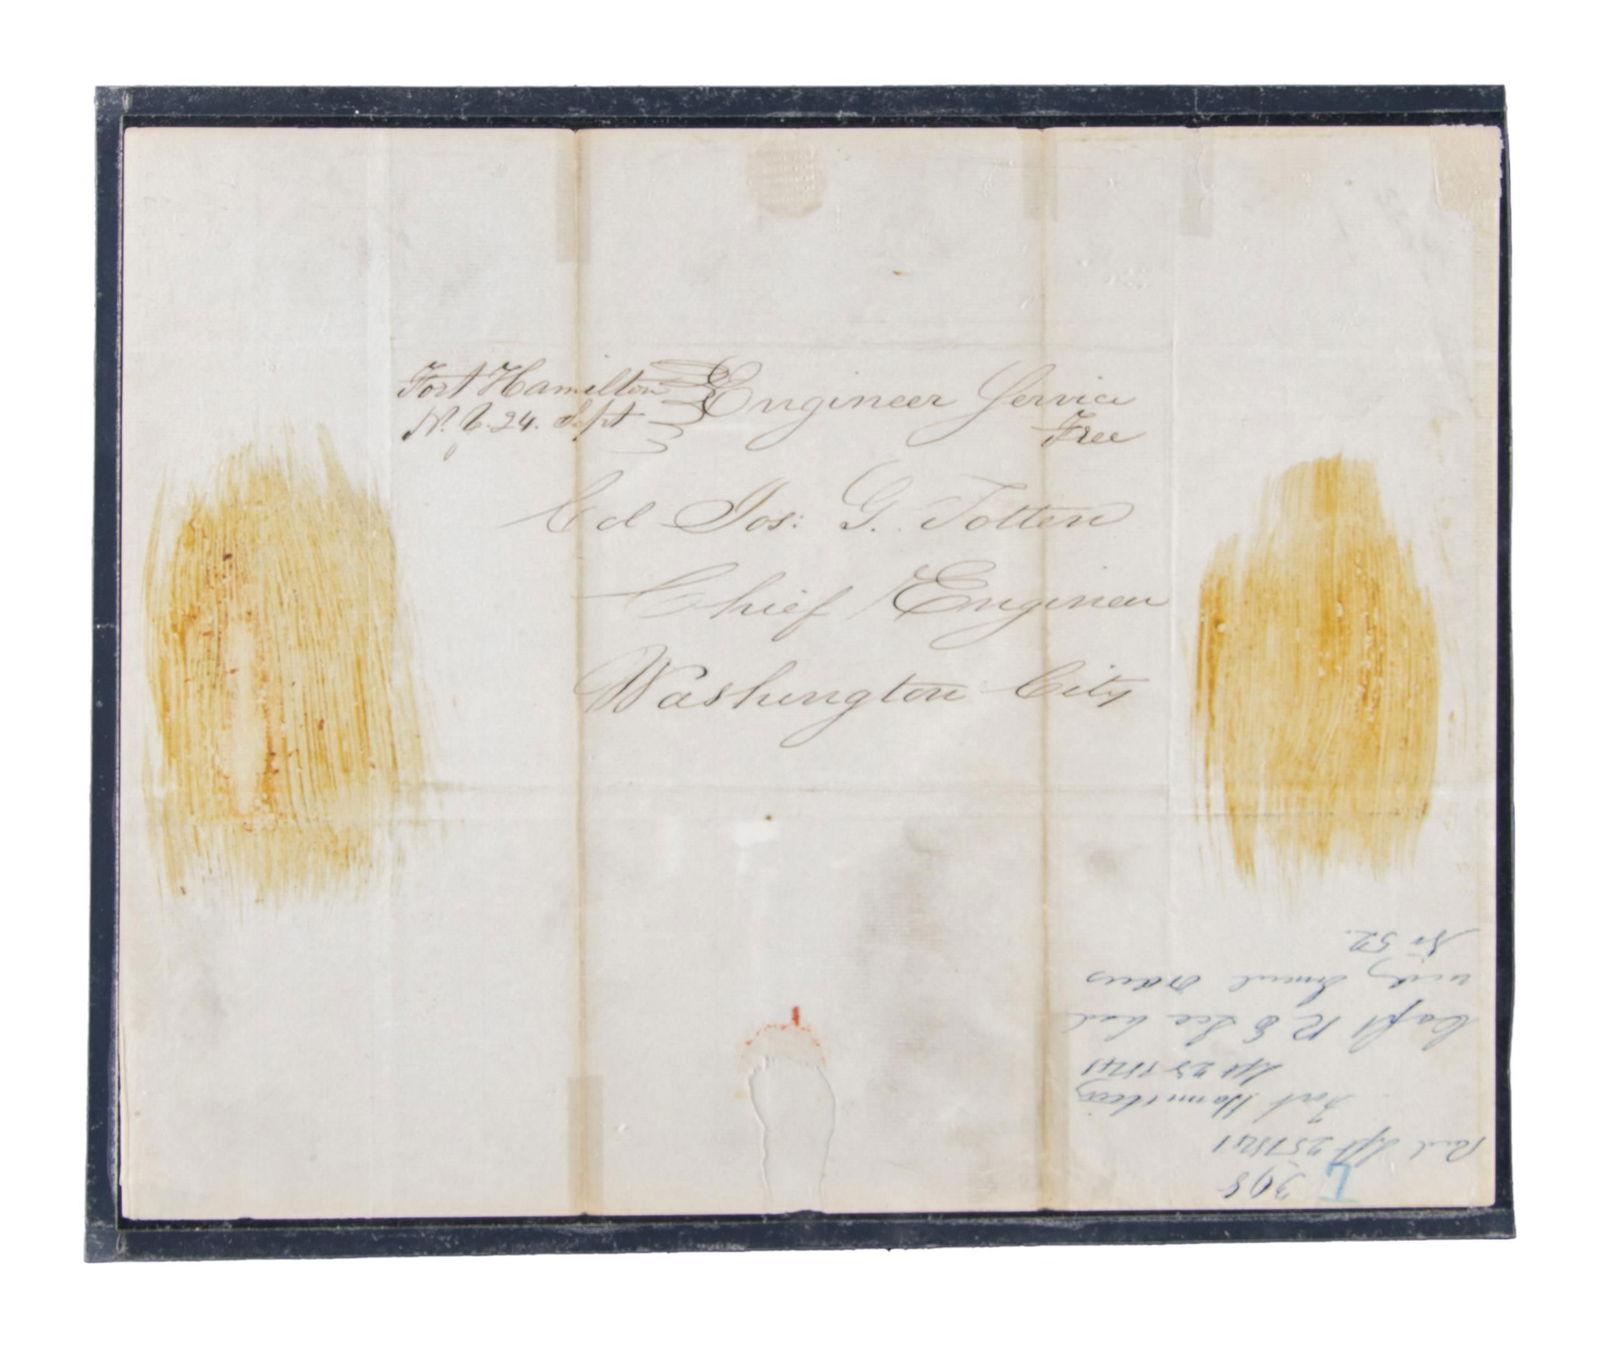 Fort Hamilton
N.Y. 24. Sept
Engineer Service
Free
Col Jos: G. Totten
Chief Engineer
Washington City
L 398
Recd Sept 25 1841
Fort Hamilton
Sept 25 1841
Capt R E Lee
No 52.